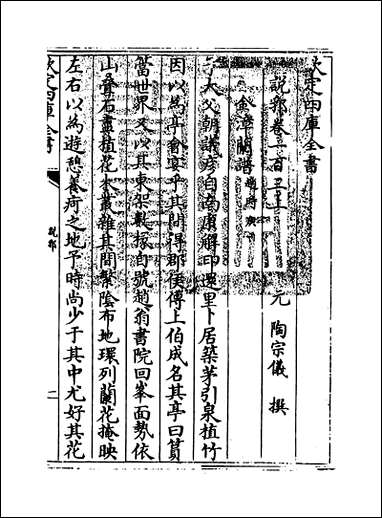 欽定四庫全書
說郛卷一百三上
元 陶宗儀 撰
金漳蘭譜 趙時庚
大父朝議彥自南康解印還里卜居築茅引泉植竹
因以為亭會宴乎其間得郡侯傅上伯成名其亭曰篔
簹世界又以其東架數椽自號趙翁書院回峯面勢依
山疊石盡植花木叢雜其間繁陰布地環列蘭花掩映
左右以為遊憩養疴之地予時尚少于其中尤好其花
欽定四庫全書
說郛
二